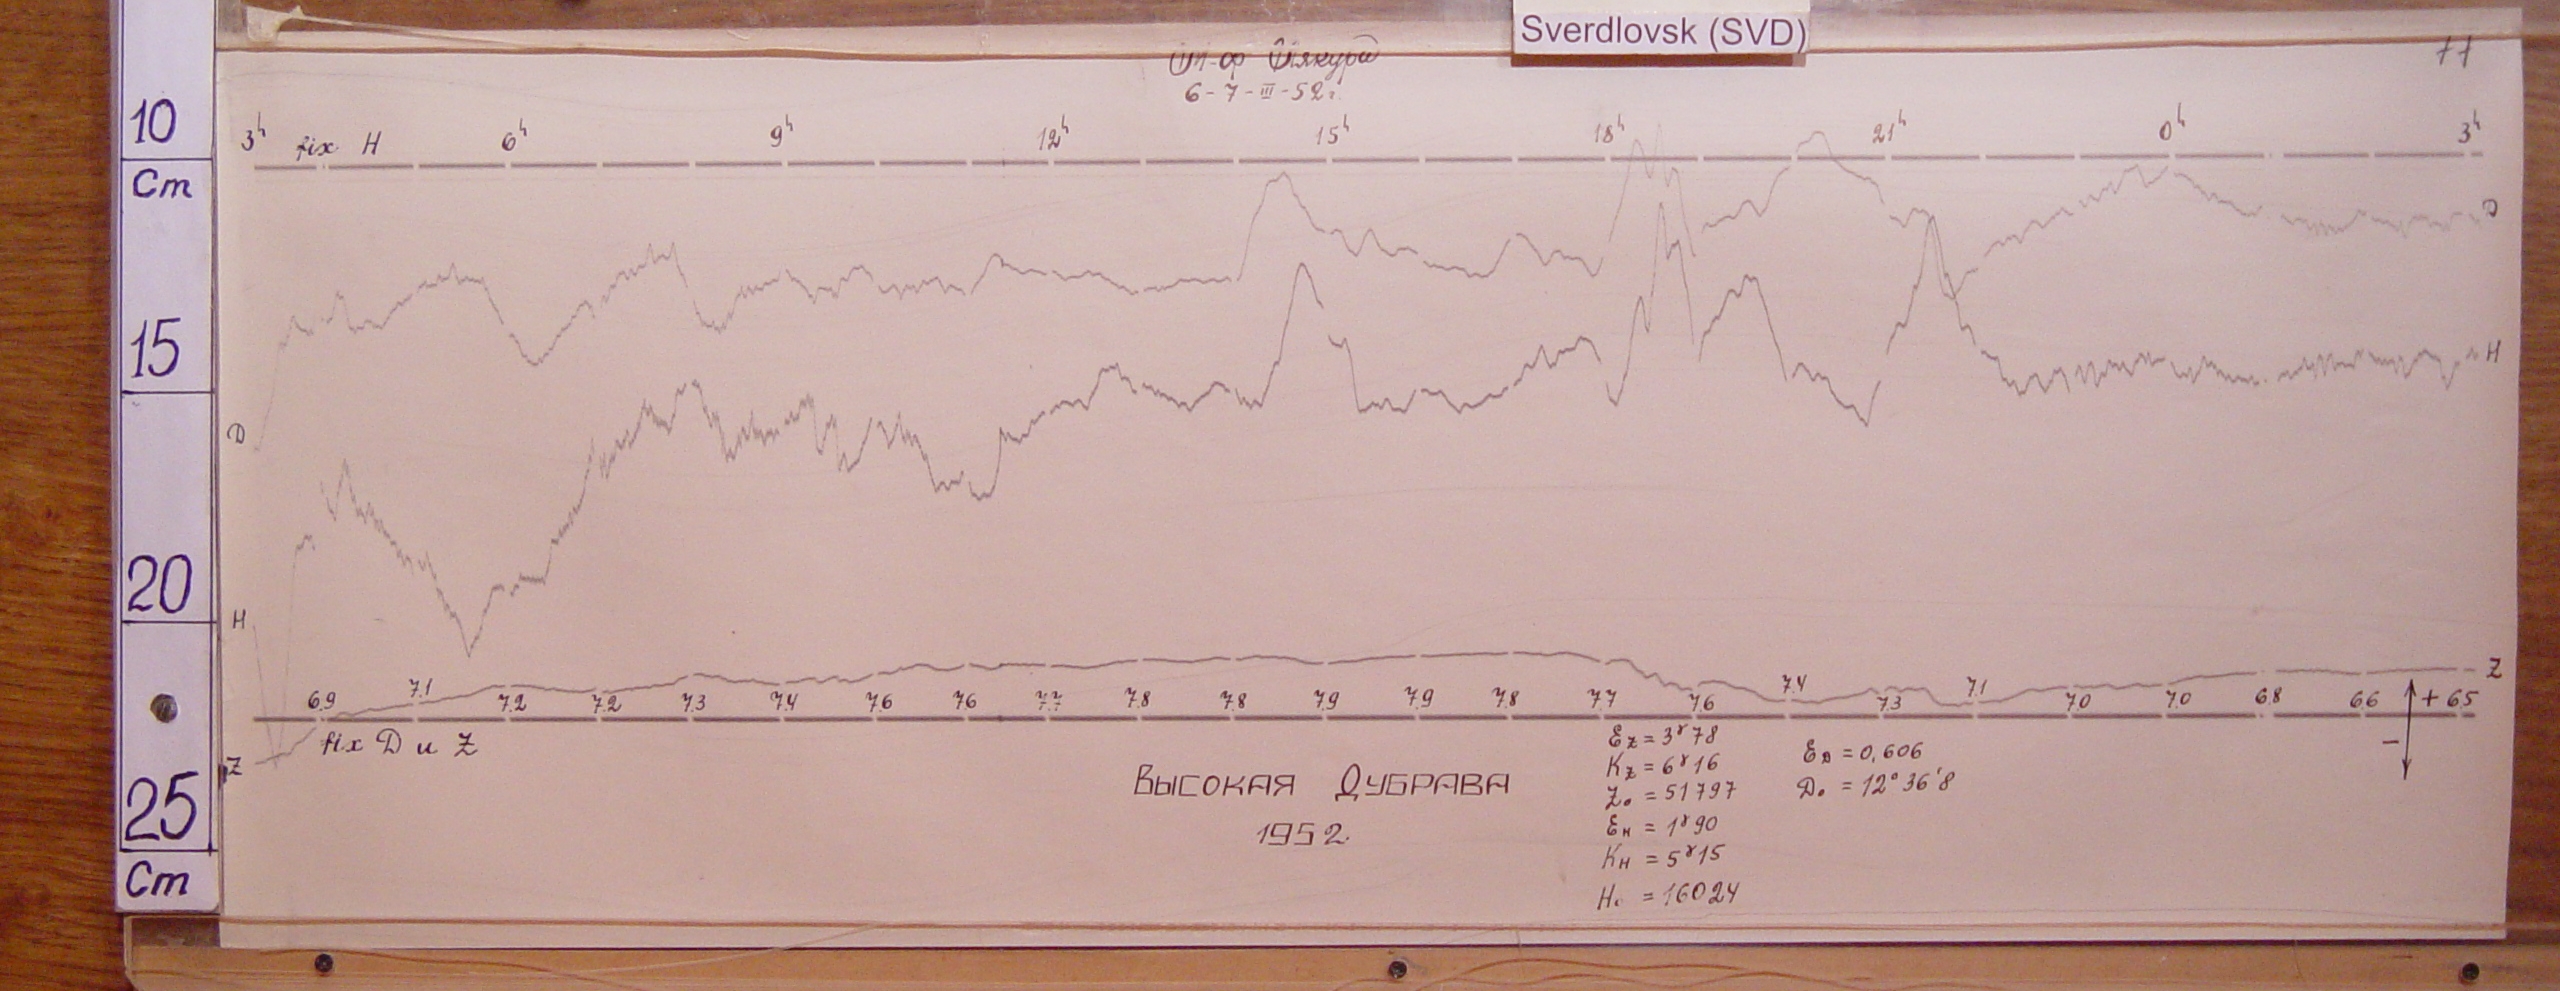 Sverdlovsk (SVD)
77
6-7-III-52г.
10
Cm
15
20
25
Cm
3ʰ fix H 6ʰ 9ʰ 12ʰ 15ʰ 18ʰ 21ʰ 0ʰ 3ʰ
D
D
H
H
Z
6.9 7.1 7.2 7.2 7.3 7.4 7.6 7.6 7.7 7.8 7.8 7.9 7.9 7.8 7.7 7.6 7.4 7.3 7.1 7.0 7.0 6.8 6.6 + 6.5
−
fix D и Z
Z
Высокая Дубрава
1952.
Ez = 3ˠ78
Kz = 6ˠ16
Z₀ = 51797
Eн = 1ˠ90
Kн = 5ˠ15
H₀ = 16024
ED = 0,606
D₀ = 12° 36'8